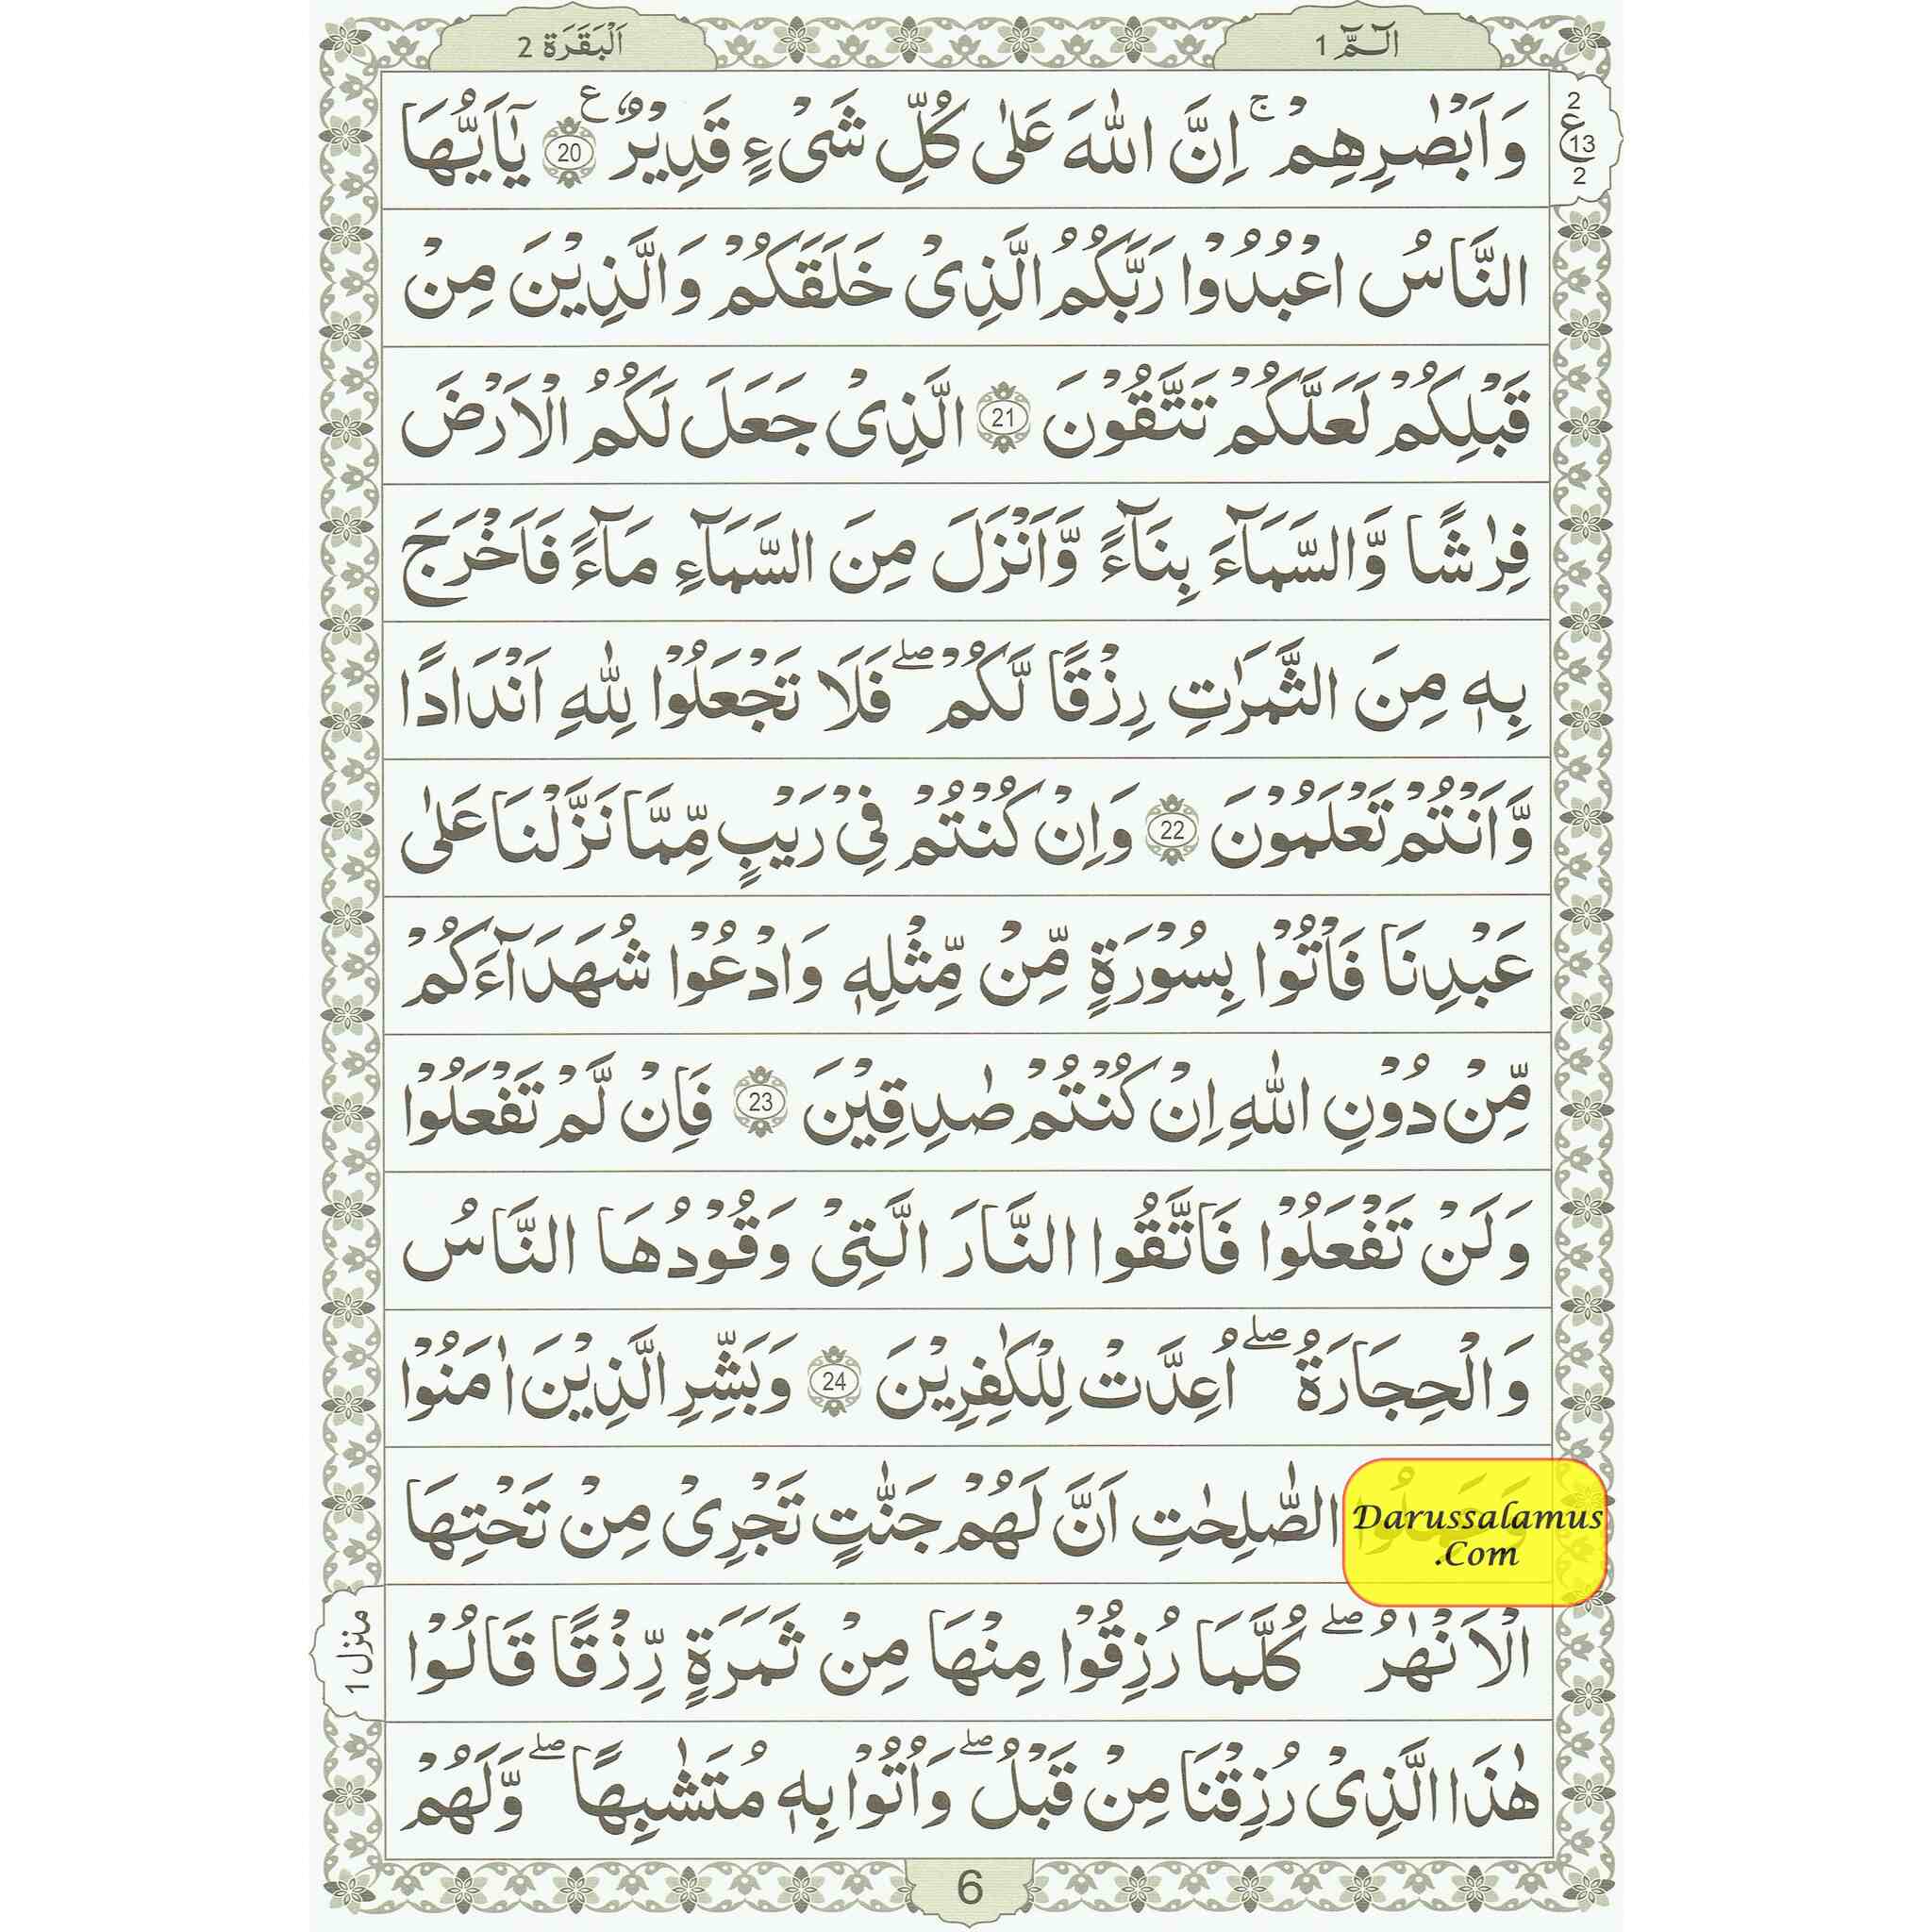 الٓمّٓ 1
اَلْبَقَرَة 2
2
ع
13
2
وَاَبْصٰرِهِمْ ۚ اِنَّ اللّٰهَ عَلٰى كُلِّ شَىْءٍ قَدِيْرٌ ࣖ 20 يٰٓاَيُّهَا
النَّاسُ اعْبُدُوْا رَبَّكُمُ الَّذِىْ خَلَقَكُمْ وَالَّذِيْنَ مِنْ
قَبْلِكُمْ لَعَلَّكُمْ تَتَّقُوْنَ 21 الَّذِىْ جَعَلَ لَكُمُ الْاَرْضَ
فِرٰشًا وَّالسَّمَآءَ بِنَآءً وَّاَنْزَلَ مِنَ السَّمَآءِ مَآءً فَاَخْرَجَ
بِهٖ مِنَ الثَّمَرٰتِ رِزْقًا لَّكُمْ ۖ فَلَا تَجْعَلُوْا لِلّٰهِ اَنْدَادًا
وَّاَنْتُمْ تَعْلَمُوْنَ 22 وَاِنْ كُنْتُمْ فِىْ رَيْبٍ مِّمَّا نَزَّلْنَا عَلٰى
عَبْدِنَا فَاْتُوْا بِسُوْرَةٍ مِّنْ مِّثْلِهٖ وَادْعُوْا شُهَدَآءَكُمْ
مِّنْ دُوْنِ اللّٰهِ اِنْ كُنْتُمْ صٰدِقِيْنَ 23 فَاِنْ لَّمْ تَفْعَلُوْا
وَلَنْ تَفْعَلُوْا فَاتَّقُوا النَّارَ الَّتِىْ وَقُوْدُهَا النَّاسُ
وَالْحِجَارَةُ ۖ اُعِدَّتْ لِلْكٰفِرِيْنَ 24 وَبَشِّرِ الَّذِيْنَ اٰمَنُوْا
وَعَمِلُوا الصّٰلِحٰتِ اَنَّ لَهُمْ جَنّٰتٍ تَجْرِىْ مِنْ تَحْتِهَا
Darussalamus
.Com
الْاَنْهٰرُ ۖ كُلَّمَا رُزِقُوْا مِنْهَا مِنْ ثَمَرَةٍ رِّزْقًا قَالُوْا
هٰذَا الَّذِىْ رُزِقْنَا مِنْ قَبْلُ ۖ وَاُتُوْا بِهٖ مُتَشٰبِهًا ۖ وَّلَهُمْ
منزل 1
6